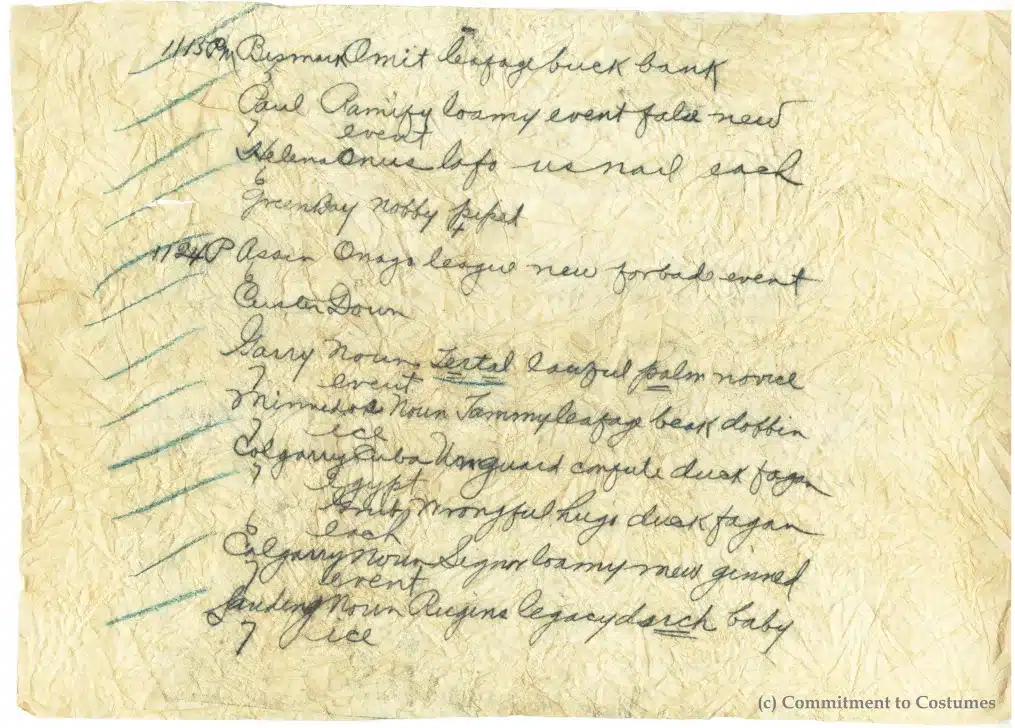 1113PM Bismark Omit leafage buck bank
Paul Ramify loamy event false new
7 event
Helena Onus lofo us nail each
6
Greenbay nobby peped
1124P Assin Onago league new forbade event
Custer Down
Garry Noun Tertal lawful palm novice
7 event
Minnedos Noun Jammy leafage beak dobbin
7 ice
Calgarry Cuba Unguard confute duck fagan
7 Egypt
Wrongful hugo duck fagan
each
Calgarry Noun Signor loamy mew ginned
7 event
Landing Noun Rugins legacy duck baby
7 ice
(c) Commitment to Costumes